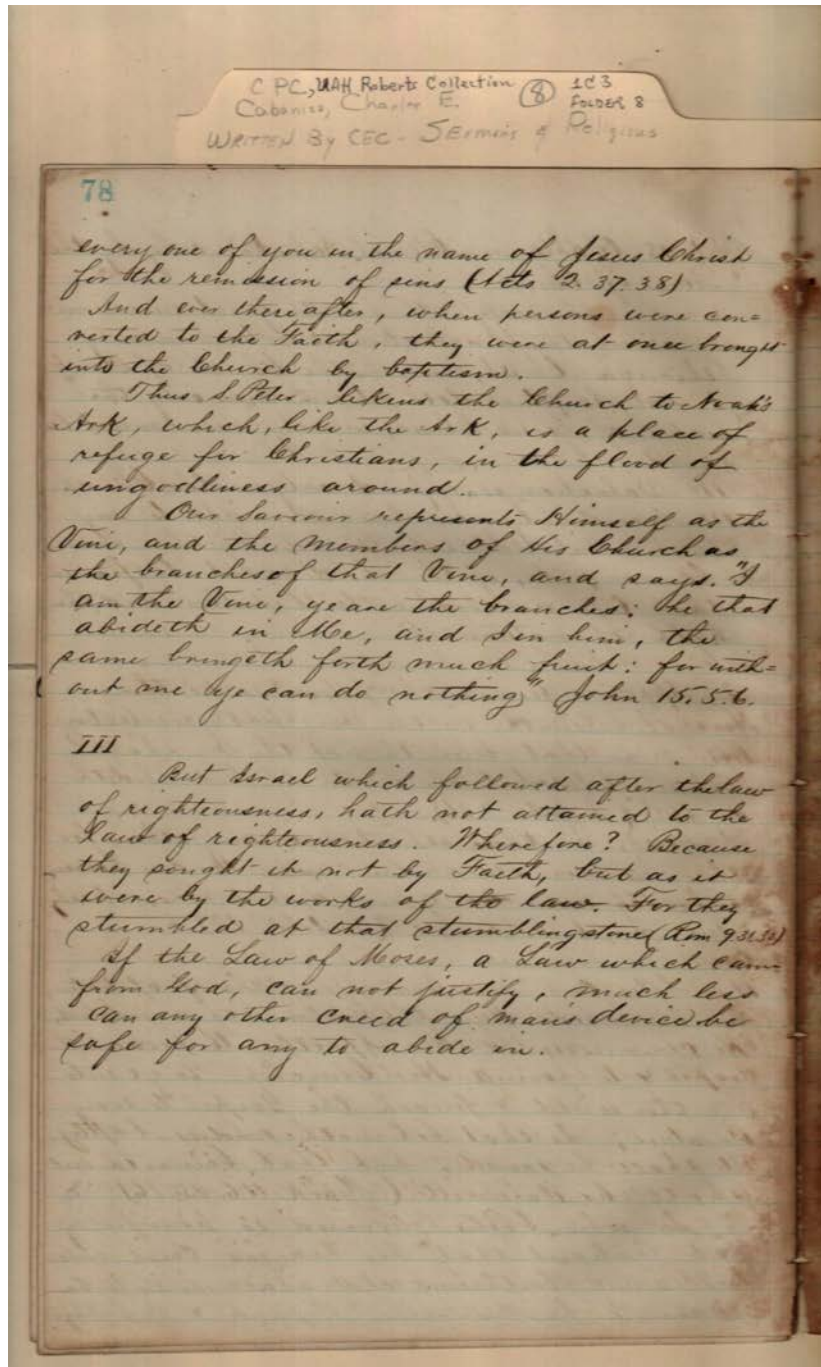 C PC, UAH Roberts Collection (8) 1C3
Cabaniss, Charles E. FOLDER 8
WRITTEN By CEC - SErmons & Religious
78
every one of you in the name of Jesus Christ
for the remission of sins (Acts 2. 37. 38)
And ever thereafter, when persons were con=
verted to the Faith, they were at once brought
into the Church by baptism.
Thus S. Peter likens the Church to Noah's
Ark, which, like the Ark, is a place of
refuge for Christians, in the flood of
ungodliness around.
Our Saviour represents Himself as the
Vine, and the members of His Church as
the branches of that Vine, and says. "I
am the Vine, ye are the branches: he that
abideth in Me, and I in him, the
same bringeth forth much fruit: for with=
out me ye can do nothing" John 15. 5. 6.
III
But Israel which followed after the law
of righteousness, hath not attained to the
law of righteousness. Wherefore? Because
they sought it not by Faith, but as it
were by the works of the law. For they
stumbled at that stumblingstone (Rom 9.31.32)
If the Law of Moses, a Law which came
from God, can not justify, much less
can any other creed of man's device be
safe for any to abide in.